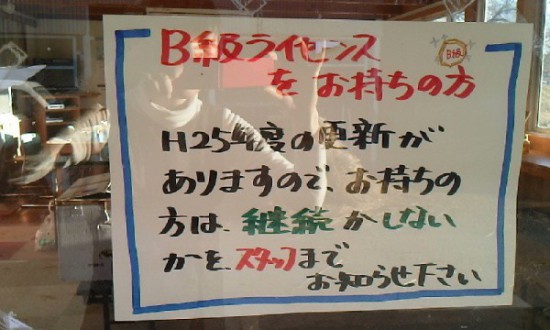 B級ライセンス
B級
をお持ちの方
H25年度の更新が
ありますので、お持ちの
方は、継続かしない
かを、スタッフまで
お知らせ下さい